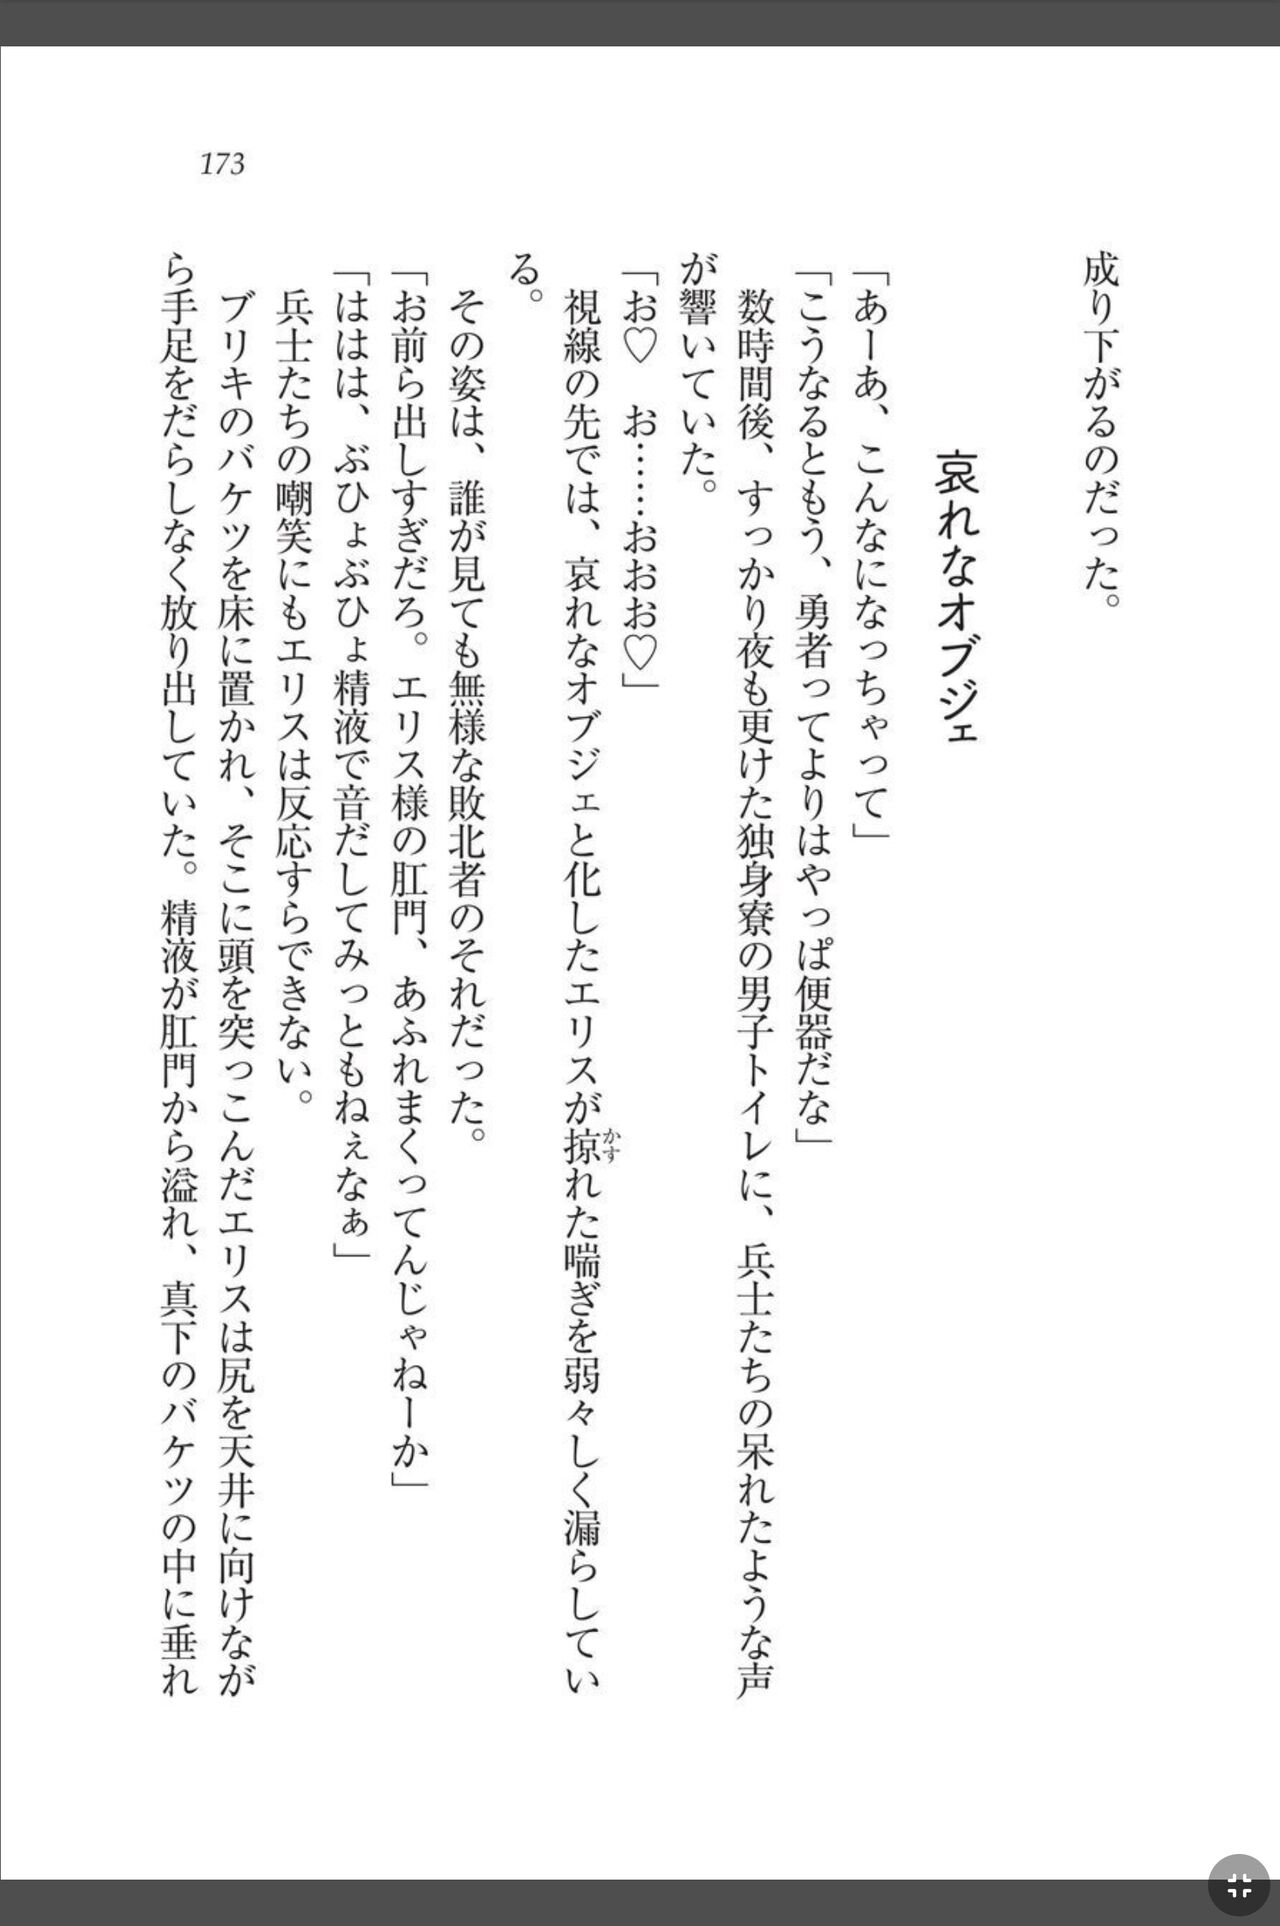 173
成り下がるのだった。
哀れなオブジェ
「あーあ、こんなになっちゃって」
「こうなるともう、勇者ってよりはやっぱ便器だな」
数時間後、すっかり夜も更けた独身寮の男子トイレに、兵士たちの呆れたような声
が響いていた。
「お♡　お……おおお♡」
視線の先では、哀れなオブジェと化したエリスが掠れた喘ぎを弱々しく漏らしてい
かす
る。
その姿は、誰が見ても無様な敗北者のそれだった。
「お前ら出しすぎだろ。エリス様の肛門、あふれまくってんじゃねーか」
「ははは、ぶひょぶひょ精液で音だしてみっともねぇなぁ」
兵士たちの嘲笑にもエリスは反応すらできない。
ブリキのバケツを床に置かれ、そこに頭を突っこんだエリスは尻を天井に向けなが
ら手足をだらしなく放り出していた。精液が肛門から溢れ、真下のバケツの中に垂れ